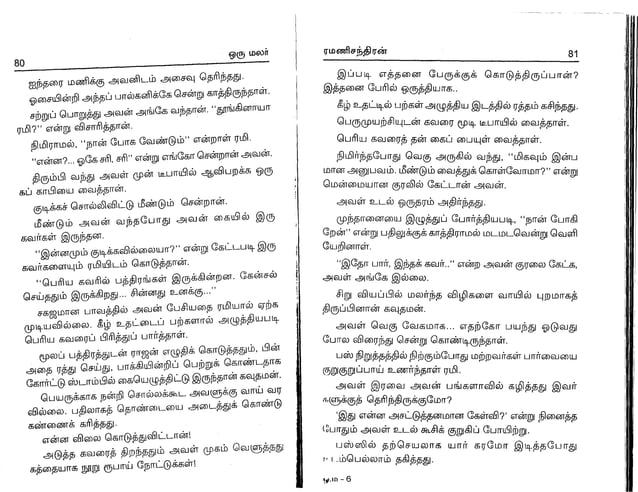 80
ஒரு மலர்
ஐந்தரை மணிக்கு அவனிடம் அசைவு தெரிந்தது.
ஓசையின்றி அந்தப் பால்கனிக்கே சென்று காத்திருந்தாள்.
சற்றுப் பொறுத்து அவன் அங்கே வந்தான். "தூங்கினாயா
ரமி?" என்று விசாரித்தான்.
நிமிராமல், "நான் போக வேண்டும்" என்றாள் ரமி.
"என்ன?... ஓகே சரி, சரி" என்று எங்கோ சென்றான் அவன்.
திரும்பி வந்து அவள் முன் டீபாயில் ஆவிபறக்க ஒரு
கப் காபியை வைத்தான்.
குடிக்கச் சொல்லிவிட்டு மீண்டும் சென்றான்.
மீண்டும் அவன் வந்தபோது அவன் கையில் இரு
கவர்கள் இருந்தன.
"இன்னமும் குடிக்கவில்லையா?" என்று கேட்டபடி இரு
கவர்களையும் ரமியிடம் கொடுத்தான்.
"பெரிய கவரில் பத்திரங்கள் இருக்கின்றன. கேன்சல்
செய்ததும் இருக்கிறது... சின்னது உனக்கு..."
சகஜமான பாவத்தில் அவன் பேசியதை ரமியால் ஏற்க
முடியவில்லை. கீழ் உதட்டைப் பற்களால் அழுத்தியபடி
பெரிய கவரைப் பிரித்துப் பார்த்தாள்.
மூலப் பத்திரத்துடன் ராஜன் எழுதிக் கொடுத்ததும், பின்
அதை ரத்து செய்து, பாக்கியின்றிப் பெற்றுக் கொண்டதாக
கோர்ட்டு ஸ்டாம்பில் கையெழுத்திட்டு இருந்தான் கவுதமன்.
பெயருக்காக நன்றி சொல்லக்கூட அவளுக்கு வாய் வர
வில்லை. பதிலாகத் தொண்டையை அடைத்துக் கொண்டு
கண்ணைக் கரித்தது.
என்ன விலை கொடுத்துவிட்டாள்!
அடுத்த கவரைத் திறந்ததும் அவள் முகம் வெளுத்தது
கத்தையாக நூறு ரூபாய் நோட்டுக்கள்!
ரமணிசந்திரன்
81
இப்படி எத்தனை பேருக்குக் கொடுத்திருப்பான்?
இத்தனை பேரில் ஒருத்தியாக..
கீழ் உதட்டில் பற்கள் அழுத்திய இடத்தில் ரத்தம் கசிந்தது.
பெருமுயற்சியுடன் கவரை மூடி டீபாயில் வைத்தாள்.
பெரிய கவரைத் தன் கைப் பையுள் வைத்தாள்.
நிமிர்ந்தபோது வெகு அருகில் வந்து, "மிகவும் இன்ப
மான அனுபவம். மீண்டும் வைத்துக் கொள்வோமா?" என்று
மென்மையான குரலில் கேட்டான் அவன்.
அவள் உடல் ஒருதரம் அதிர்ந்தது.
முந்தானையை இழுத்துப் போர்த்தியபடி, "நான் போகி
றேன்" என்று பதிலுக்குக் காத்திராமல் மடமடவென்று வெளி
யேறினாள்.
"இதோ பார், இந்தக் கவர்.." என்ற அவன் குரலை கேட்க,
அவள் அங்கே இல்லை.
சிறு வியப்பில் மலர்ந்த விழிகளை வாயில் புறமாகத்
திருப்பினான் கவுதமன்.
அவள் வெகு வேகமாக... எதற்கோ பயந்து ஓடுவது
போல விரைந்து சென்று கொண்டிருந்தாள்.
பஸ் நிறுத்தத்தில் நிற்கும்போது மற்றவர்கள் பார்வையை
குறுகுறுப்பாய் உணர்ந்தாள் ரமி.
அவள் இரவை அவன் பங்களாவில் கழித்தது இவர்
களுக்குத் தெரிந்திருக்குமோ?
'இது என்ன அசட்டுத்தனமான கேள்வி?' என்று நினைத்த
போதும் அவள் உடல் கூசிக் குறுகிப் போயிற்று.
பஸ்ஸில் தற்செயலாக யார் கரமோ இடித்தபோது
டம்பெல்லாம் தகித்தது.
6